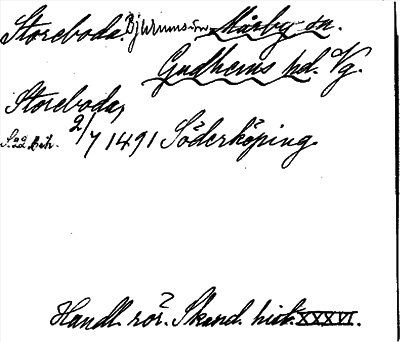 Storeboda. Bjurums sn Marby sn.
Gudhems hd. Vg.
Storeboda,
S. 22 Beh. 2/7 1491 Söderköping
Handl. rör. Skand. hist. XXXVI.